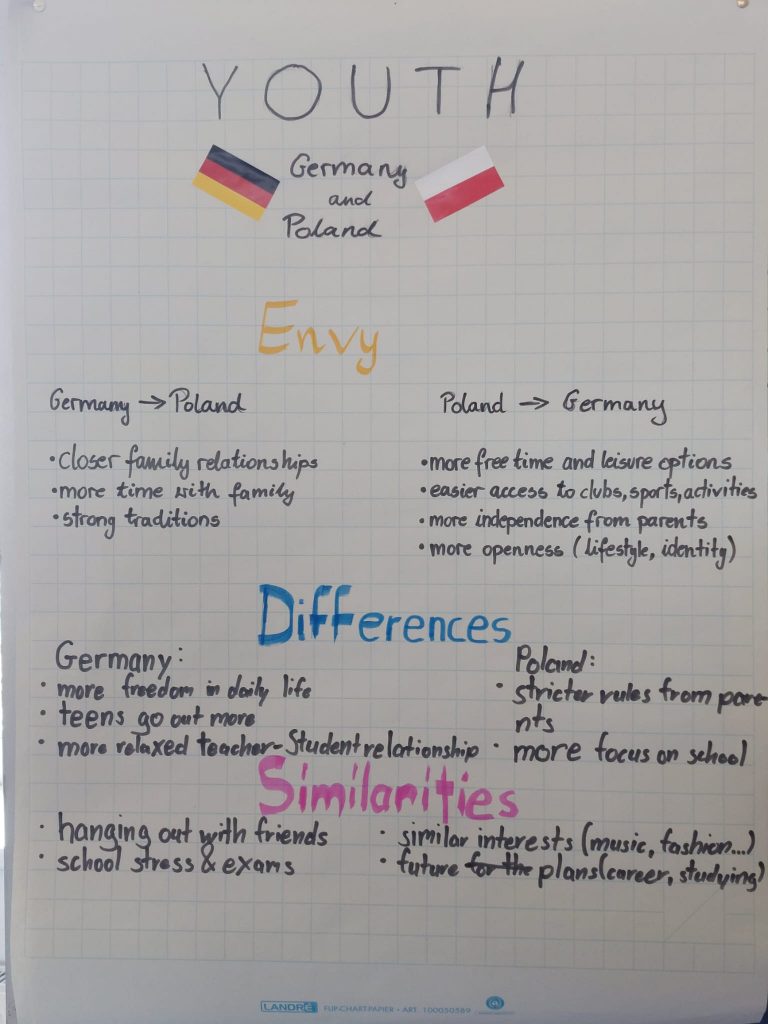 YOUTH
Germany
and
Poland
Envy
Germany → Poland
• closer family relationships
• more time with family
• strong traditions
Poland → Germany
• more free time and leisure options
• easier access to clubs, sports, activities
• more independence from parents
• more openness (lifestyle, identity)
Differences
Germany:
• more freedom in daily life
• teens go out more
• more relaxed teacher-Student relationship
Poland:
• stricter rules from pare-
nts
• more focus on school
Similarities
• hanging out with friends
• school stress & exams
• similar interests (music, fashion...)
• future for the plans (career, studying)
LANDRÉ FLIP-CHARTPAPIER • ART. 100050589